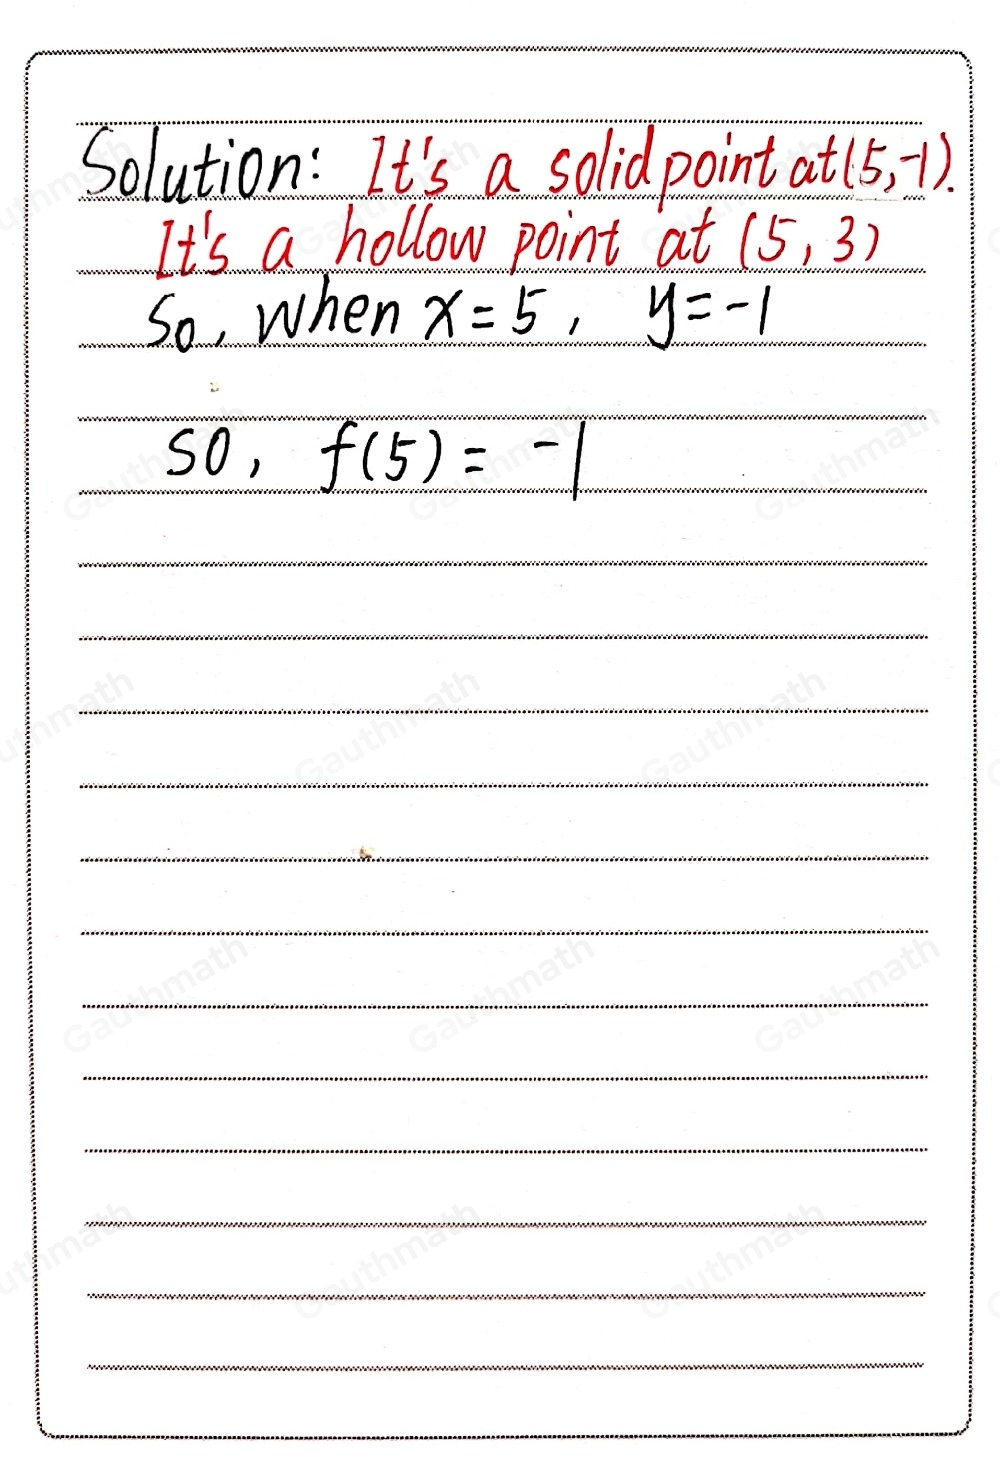 Solution: It's a solid point at (5,-1).
It's a hollow point at (5, 3)
So, when x = 5, y = -1
SO, f(5) = -1
Gauthmath